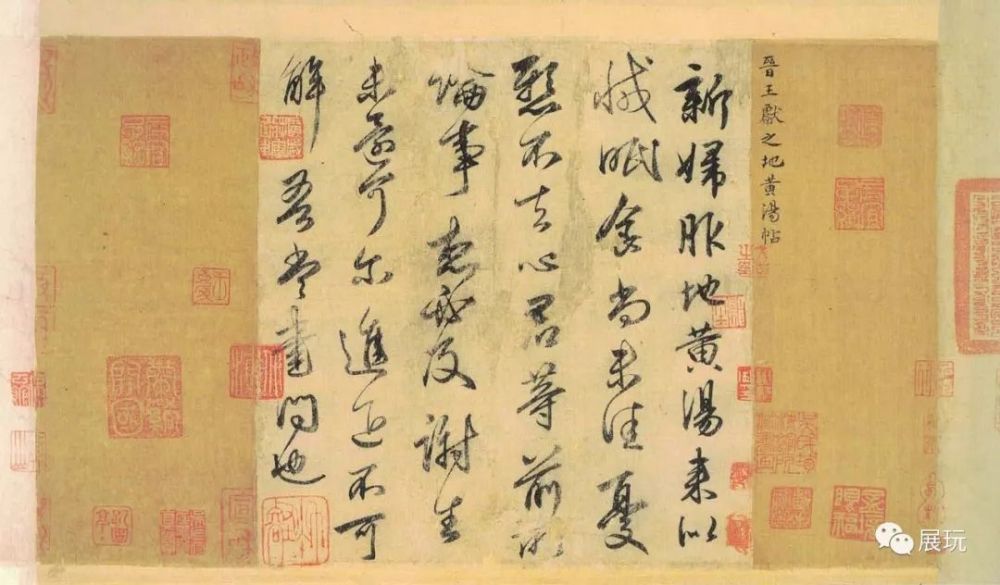 晉王獻之地黄湯帖
新婦服地黄湯来似
減眠食尚未佳憂
懸不去心君等前所
論事想必及謝生
未還可尔進退不可
解吾當書問也
展玩